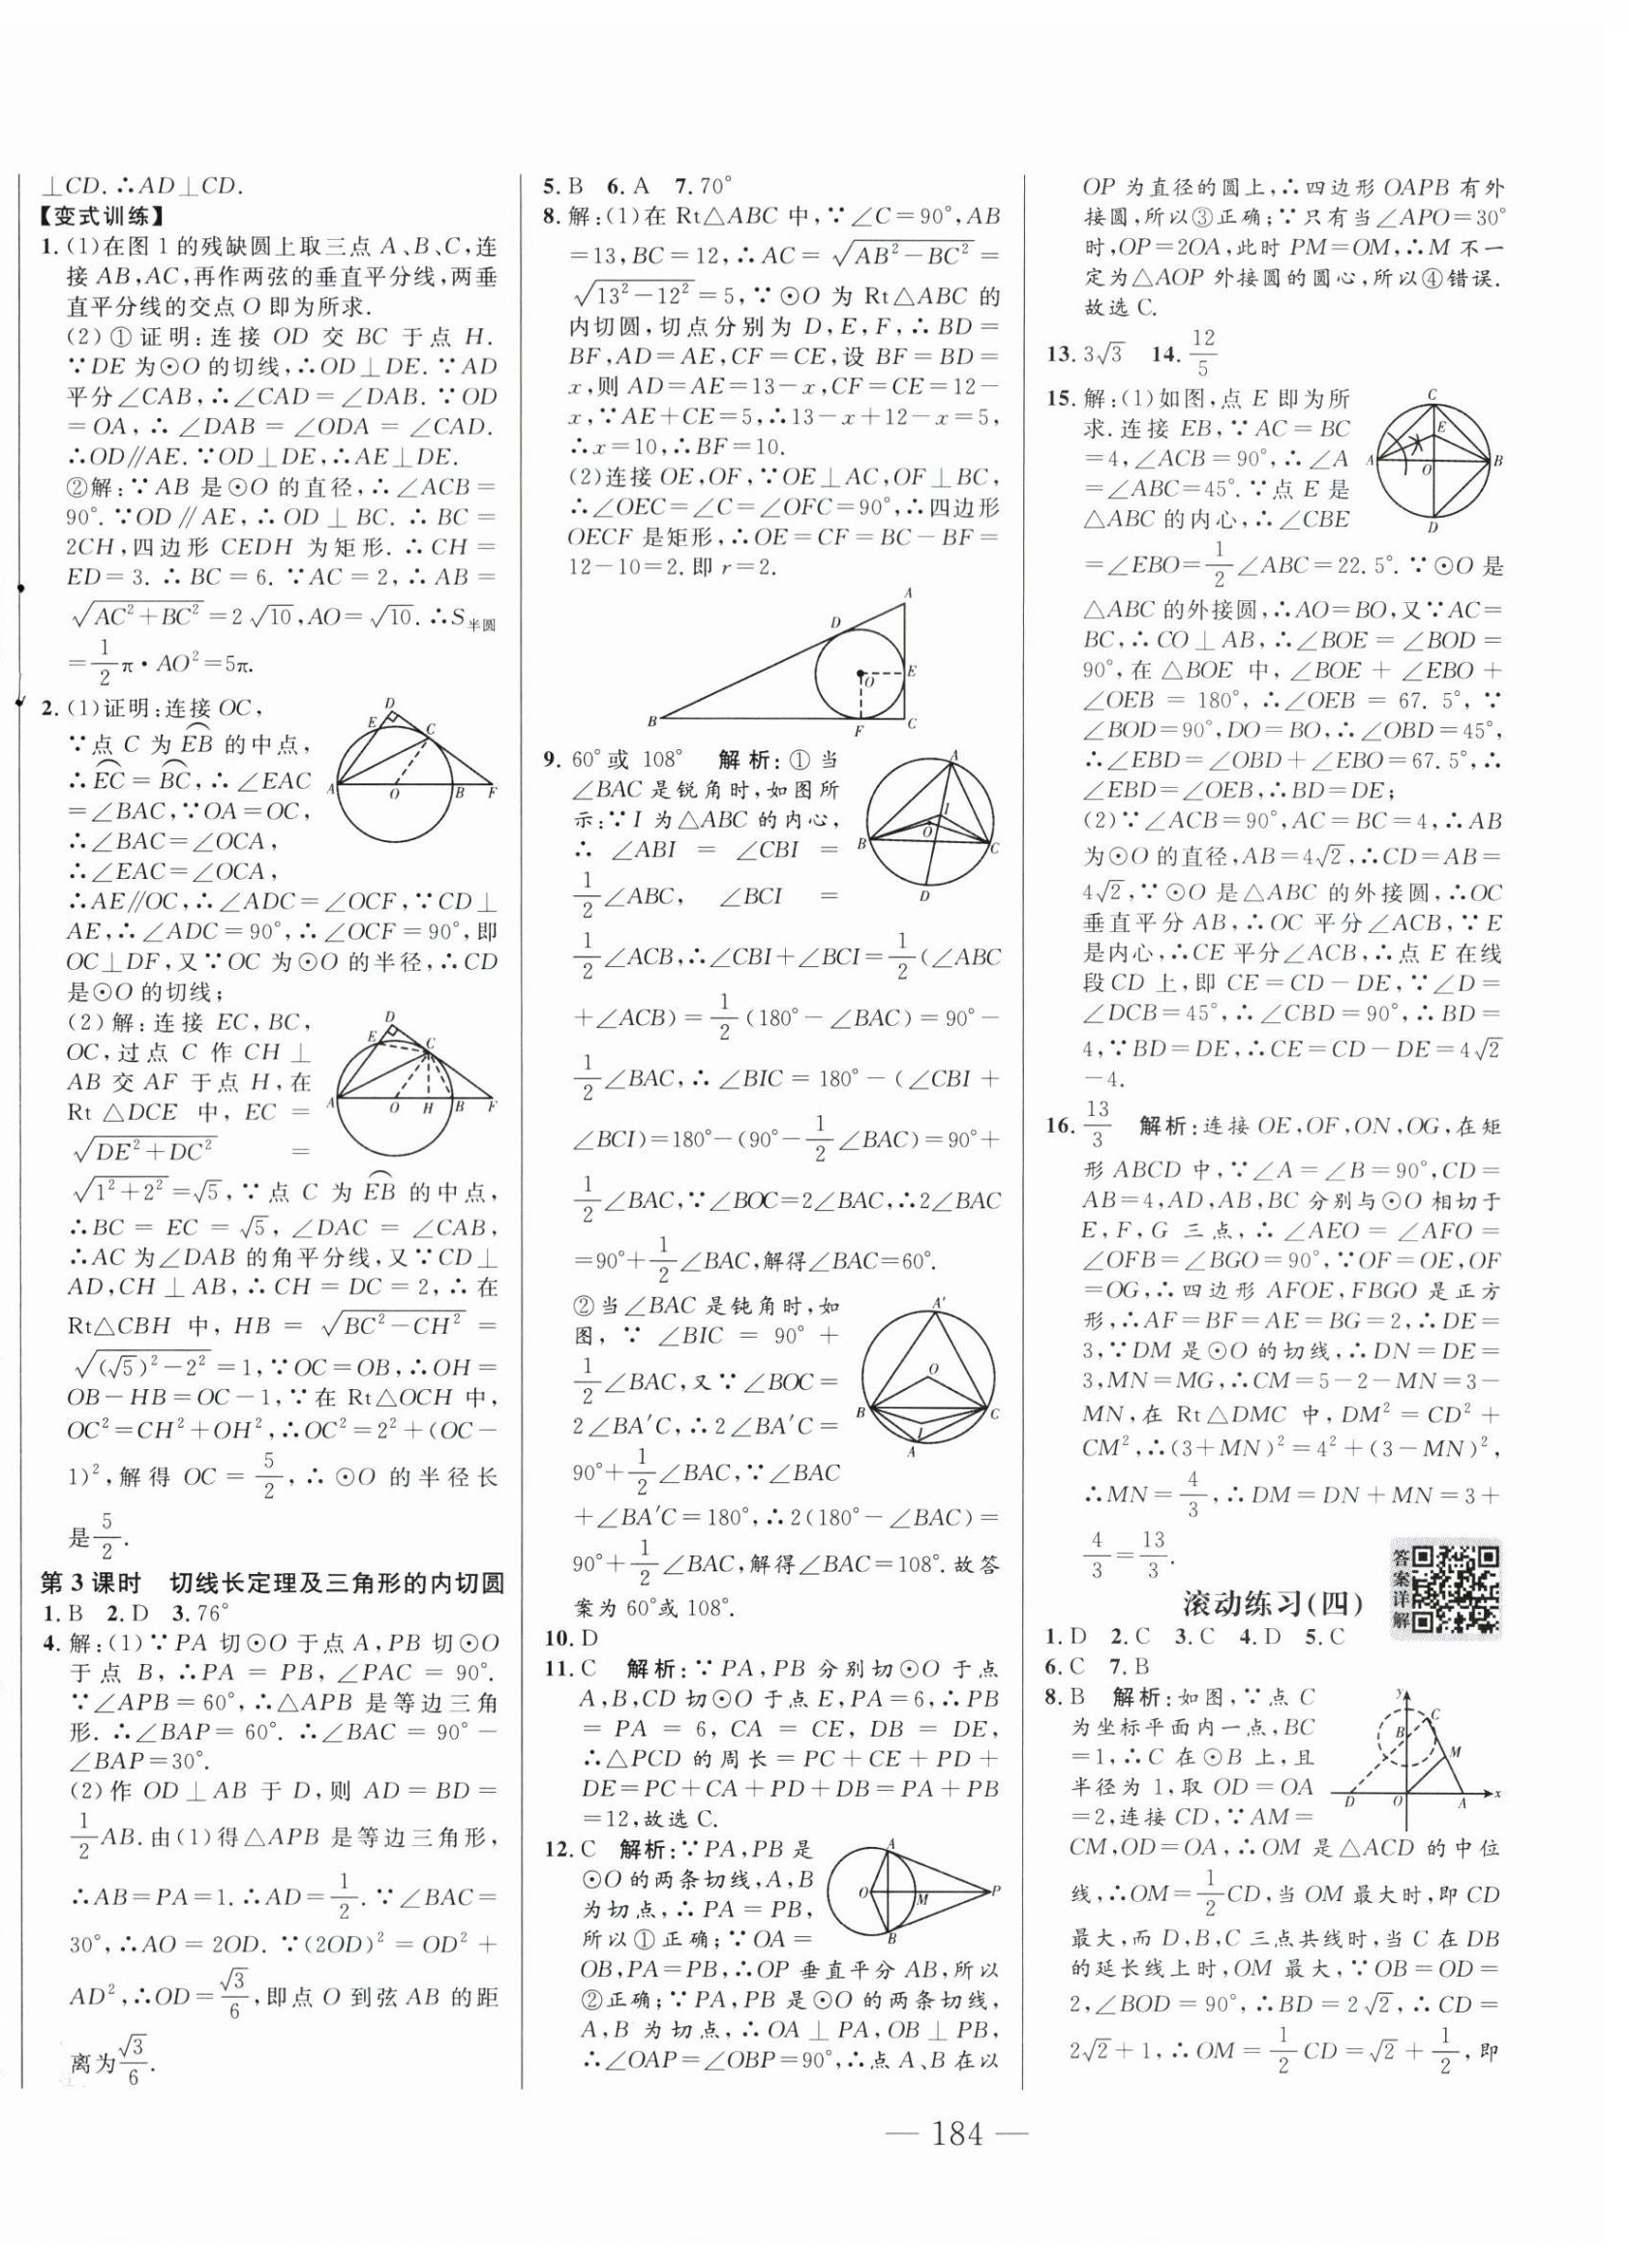 ⊥CD. ∴AD⊥CD.
【变式训练】
1. (1)在图 1 的残缺圆上取三点 A、B、C,连
接 AB,AC,再作两弦的垂直平分线,两垂
直平分线的交点 O 即为所求.
(2) ①证明:连接 OD 交 BC 于点 H.
∵DE 为⊙O 的切线,∴OD⊥DE. ∵AD
平分∠CAB,∴∠CAD=∠DAB. ∵OD
=OA, ∴ ∠DAB = ∠ODA = ∠CAD.
∴OD∥AE. ∵OD⊥DE,∴AE⊥DE.
②解:∵AB 是⊙O 的直径,∴∠ACB=
90°. ∵OD∥AE,∴OD⊥BC. ∴BC=
2CH,四边形 CEDH 为矩形. ∴CH=
ED=3. ∴BC=6. ∵AC=2,∴AB=
√(AC²+BC²)=2√10,AO=√10. ∴S半圆
=1/2π·AO²=5π.
2. (1)证明:连接 OC,
∵点 C 为EB⌒的中点,
∴EC⌒=BC⌒,∴∠EAC
=∠BAC,∵OA=OC,
∴∠BAC=∠OCA,
∴∠EAC=∠OCA,
∴AE∥OC,∴∠ADC=∠OCF,∵CD⊥
AE,∴∠ADC=90°,∴∠OCF=90°,即
OC⊥DF,又∵OC 为⊙O 的半径,∴CD
是⊙O 的切线;
(2)解:连接 EC,BC,
OC,过点 C 作 CH⊥
AB 交 AF 于点 H,在
Rt △DCE 中, EC =
√(DE²+DC²) =
√(1²+2²)=√5,∵点 C 为EB⌒的中点,
∴BC = EC = √5, ∠DAC = ∠CAB,
∴AC 为∠DAB 的角平分线,又∵CD⊥
AD,CH⊥AB,∴CH=DC=2,∴在
Rt△CBH 中, HB = √(BC²-CH²) =
√((√5)²-2²)=1,∵OC=OB,∴OH=
OB-HB=OC-1,∵在 Rt△OCH 中,
OC²=CH²+OH²,∴OC²=2²+(OC-
1)²,解得 OC=5/2,∴⊙O 的半径长
是5/2.
第 3 课时 切线长定理及三角形的内切圆
1. B 2. D 3. 76°
4. 解:(1)∵PA 切⊙O 于点 A,PB 切⊙O
于点 B,∴PA = PB,∠PAC = 90°.
∵∠APB=60°,∴△APB 是等边三角
形. ∴∠BAP=60°. ∴∠BAC=90°-
∠BAP=30°.
(2)作 OD⊥AB 于 D,则 AD=BD=
1/2AB. 由(1)得△APB 是等边三角形,
∴AB=PA=1. ∴AD=1/2. ∵∠BAC=
30°,∴AO=2OD. ∵(2OD)²=OD²+
AD²,∴OD=√3/6,即点 O 到弦 AB 的距
离为√3/6.
5. B 6. A 7. 70°
8. 解:(1)在 Rt△ABC 中,∵∠C=90°,AB
=13,BC=12,∴AC=√(AB²-BC²)=
√(13²-12²)=5,∵⊙O 为 Rt△ABC 的
内切圆,切点分别为 D,E,F,∴BD=
BF,AD=AE,CF=CE,设 BF=BD=
x,则 AD=AE=13-x,CF=CE=12-
x,∵AE+CE=5,∴13-x+12-x=5,
∴x=10,∴BF=10.
(2)连接 OE,OF,∵OE⊥AC,OF⊥BC,
∴∠OEC=∠C=∠OFC=90°,∴四边形
OECF 是矩形,∴OE=CF=BC-BF=
12-10=2. 即 r=2.
A
D
O
E
B
F
C
9. 60°或 108° 解析:①当
∠BAC 是锐角时,如图所
示:∵I 为△ABC 的内心,
∴ ∠ABI = ∠CBI =
1/2∠ABC, ∠BCI =
1/2∠ACB,∴∠CBI+∠BCI=1/2(∠ABC
+∠ACB)=1/2(180°-∠BAC)=90°-
1/2∠BAC,∴∠BIC=180°-(∠CBI+
∠BCI)=180°-(90°-1/2∠BAC)=90°+
1/2∠BAC,∵∠BOC=2∠BAC,∴2∠BAC
=90°+1/2∠BAC,解得∠BAC=60°.
②当∠BAC 是钝角时,如
图, ∵ ∠BIC = 90° +
1/2∠BAC,又∵∠BOC=
2∠BA′C,∴2∠BA′C=
90°+1/2∠BAC,∵∠BAC
+∠BA′C=180°,∴2(180°-∠BAC)=
90°+1/2∠BAC,解得∠BAC=108°. 故答
案为 60°或 108°.
10. D
11. C 解析:∵PA,PB 分别切⊙O 于点
A,B,CD 切⊙O 于点 E,PA=6,∴PB
= PA = 6, CA = CE, DB = DE,
∴△PCD 的周长=PC+CE+PD+
DE=PC+CA+PD+DB=PA+PB
=12,故选 C.
12. C 解析:∵PA,PB 是
⊙O 的两条切线,A,B
为切点,∴PA = PB,
所以①正确;∵OA=
OB,PA=PB,∴OP 垂直平分 AB,所以
②正确;∵PA,PB 是⊙O 的两条切线,
A,B 为切点,∴OA⊥PA,OB⊥PB,
∴∠OAP=∠OBP=90°,∴点 A、B 在以
OP 为直径的圆上,∴四边形 OAPB 有外
接圆,所以③正确;∵只有当∠APO=30°
时,OP=2OA,此时 PM=OM,∴M 不一
定为△AOP 外接圆的圆心,所以④错误.
故选 C.
13. 3√3 14. 12/5
15. 解:(1)如图,点 E 即为所
求. 连接 EB,∵AC=BC
=4,∠ACB=90°,∴∠A
=∠ABC=45°. ∵点 E 是
△ABC 的内心,∴∠CBE
=∠EBO=1/2∠ABC=22.5°. ∵⊙O 是
△ABC 的外接圆,∴AO=BO,又∵AC=
BC,∴CO⊥AB,∴∠BOE=∠BOD=
90°,在△BOE 中,∠BOE+∠EBO+
∠OEB = 180°,∴∠OEB = 67.5°,∵
∠BOD=90°,DO=BO,∴∠OBD=45°,
∴∠EBD=∠OBD+∠EBO=67.5°,∴
∠EBD=∠OEB,∴BD=DE;
(2)∵∠ACB=90°,AC=BC=4,∴AB
为⊙O 的直径,AB=4√2,∴CD=AB=
4√2,∵⊙O 是△ABC 的外接圆,∴OC
垂直平分 AB,∴OC 平分∠ACB,∵E
是内心,∴CE 平分∠ACB,∴点 E 在线
段 CD 上,即 CE=CD-DE,∵∠D=
∠DCB=45°,∴∠CBD=90°,∴BD=
4,∵BD=DE,∴CE=CD-DE=4√2
-4.
16. 13/3 解析:连接 OE,OF,ON,OG,在矩
形 ABCD 中,∵∠A=∠B=90°,CD=
AB=4,AD,AB,BC 分别与⊙O 相切于
E,F,G 三点,∴∠AEO=∠AFO=
∠OFB=∠BGO=90°,∵OF=OE,OF
=OG,∴四边形 AFOE,FBGO 是正方
形,∴AF=BF=AE=BG=2,∴DE=
3,∵DM 是⊙O 的切线,∴DN=DE=
3,MN=MG,∴CM=5-2-MN=3-
MN,在 Rt△DMC 中,DM²=CD²+
CM²,∴(3+MN)²=4²+(3-MN)²,
∴MN=4/3,∴DM=DN+MN=3+
4/3=13/3.
答案详解
滚动练习(四)
1. D 2. C 3. C 4. D 5. C
6. C 7. B
8. B 解析:如图,∵点 C
为坐标平面内一点,BC
=1,∴C 在⊙B 上,且
半径为 1,取 OD=OA
=2,连接 CD,∵AM=
CM,OD=OA,∴OM 是△ACD 的中位
线,∴OM=1/2CD,当 OM 最大时,即 CD
最大,而 D,B,C 三点共线时,当 C 在 DB
的延长线上时,OM 最大,∵OB=OD=
2,∠BOD=90°,∴BD=2√2,∴CD=
2√2+1,∴OM=1/2CD=√2+1/2,即
— 184 —